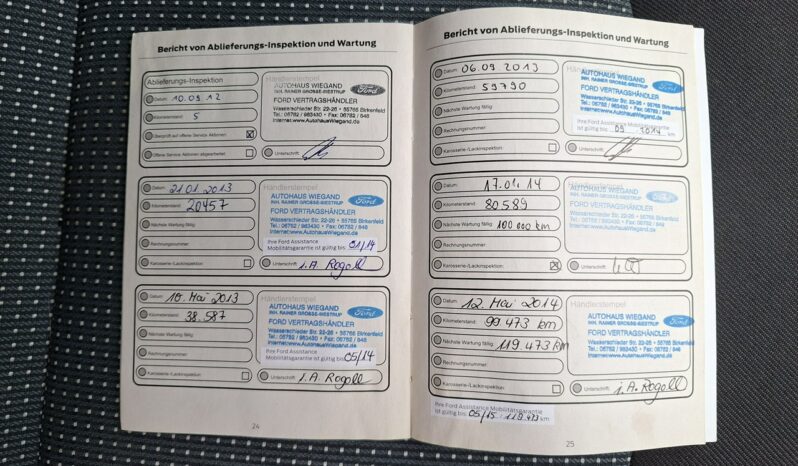 Bericht von Ablieferungs-Inspektion und Wartung
Ablieferungs-Inspektion
Datum: 10.09.12
Kilometerstand: 5
Überprüft auf offene Service Aktionen
Offene Service Aktionen abgearbeitet
Händlerstempel
AUTOHAUS WIEGAND
INH. RAINER GROSSE-WESTRUP
Ford
FORD VERTRAGSHÄNDLER
Wasserschieder Str. 22-26 • 55765 Birkenfeld
Tel.: 06782 / 983430 • Fax: 06782 / 848
Internet:www.AutohausWiegand.de
Unterschrift:
Datum: 21.01.2013
Kilometerstand: 20457
Nächste Wartung fällig:
Rechnungsnummer:
Karosserie-/Lackinspektion:
Händlerstempel
AUTOHAUS WIEGAND
INH. RAINER GROSSE-WESTRUP
Ford
FORD VERTRAGSHÄNDLER
Wasserschieder Str. 22-26 • 55765 Birkenfeld
Tel.: 06782 / 983430 • Fax: 06782 / 848
Internet:www.AutohausWiegand.de
Ihre Ford Assistance
Mobilitätsgarantie ist gültig bis 01/14
Unterschrift: i.A. Rogoll
Datum: 10. Mai 2013
Kilometerstand: 38.587
Nächste Wartung fällig:
Rechnungsnummer:
Karosserie-/Lackinspektion:
Händlerstempel
AUTOHAUS WIEGAND
INH. RAINER GROSSE-WESTRUP
Ford
FORD VERTRAGSHÄNDLER
Wasserschieder Str. 22-26 • 55765 Birkenfeld
Tel.: 06782 / 983430 • Fax: 06782 / 848
Internet:www.AutohausWiegand.de
Ihre Ford Assistance
Mobilitätsgarantie ist gültig bis 05/14
Unterschrift: i.A. Rogoll
24
Bericht von Ablieferungs-Inspektion und Wartung
Datum: 06.09.2013
Kilometerstand: 59790
Nächste Wartung fällig:
Rechnungsnummer:
Karosserie-/Lackinspektion:
AUTOHAUS WIEGAND
INH. RAINER GROSSE-WESTRUP
Ford
FORD VERTRAGSHÄNDLER
Wasserschieder Str. 22-26 • 55765 Birkenfeld
Tel.: 06782 / 983430 • Fax: 06782 / 848
Internet:www.AutohausWiegand.de
Ihre Ford Assistance Mobilitätsgarantie
ist gültig bis 09 2014 km
Unterschrift:
Datum: 17.01.14
Kilometerstand: 80589
Nächste Wartung fällig: 100 000 km
Rechnungsnummer:
Karosserie-/Lackinspektion:
Händlerstempel
AUTOHAUS WIEGAND
INH. RAINER GROSSE-WESTRUP
Ford
FORD VERTRAGSHÄNDLER
Wasserschieder Str. 22-26 • 55765 Birkenfeld
Tel.: 06782 / 983430 • Fax: 06782 / 848
Internet:www.AutohausWiegand.de
Unterschrift:
Datum: 12. Mai 2014
Kilometerstand: 99 473 km
Nächste Wartung fällig: 119.473 km
Rechnungsnummer:
Karosserie-/Lackinspektion:
Händlerstempel
AUTOHAUS WIEGAND
INH. RAINER GROSSE-WESTRUP
Ford
FORD VERTRAGSHÄNDLER
Wasserschieder Str. 22-26 • 55765 Birkenfeld
Tel.: 06782 / 983430 • Fax: 06782 / 848
Internet:www.AutohausWiegand.de
Unterschrift: i.A. Rogoll
Ihre Ford Assistance Mobilitätsgarantie
ist gültig bis 05/15 - 119.473 km
25